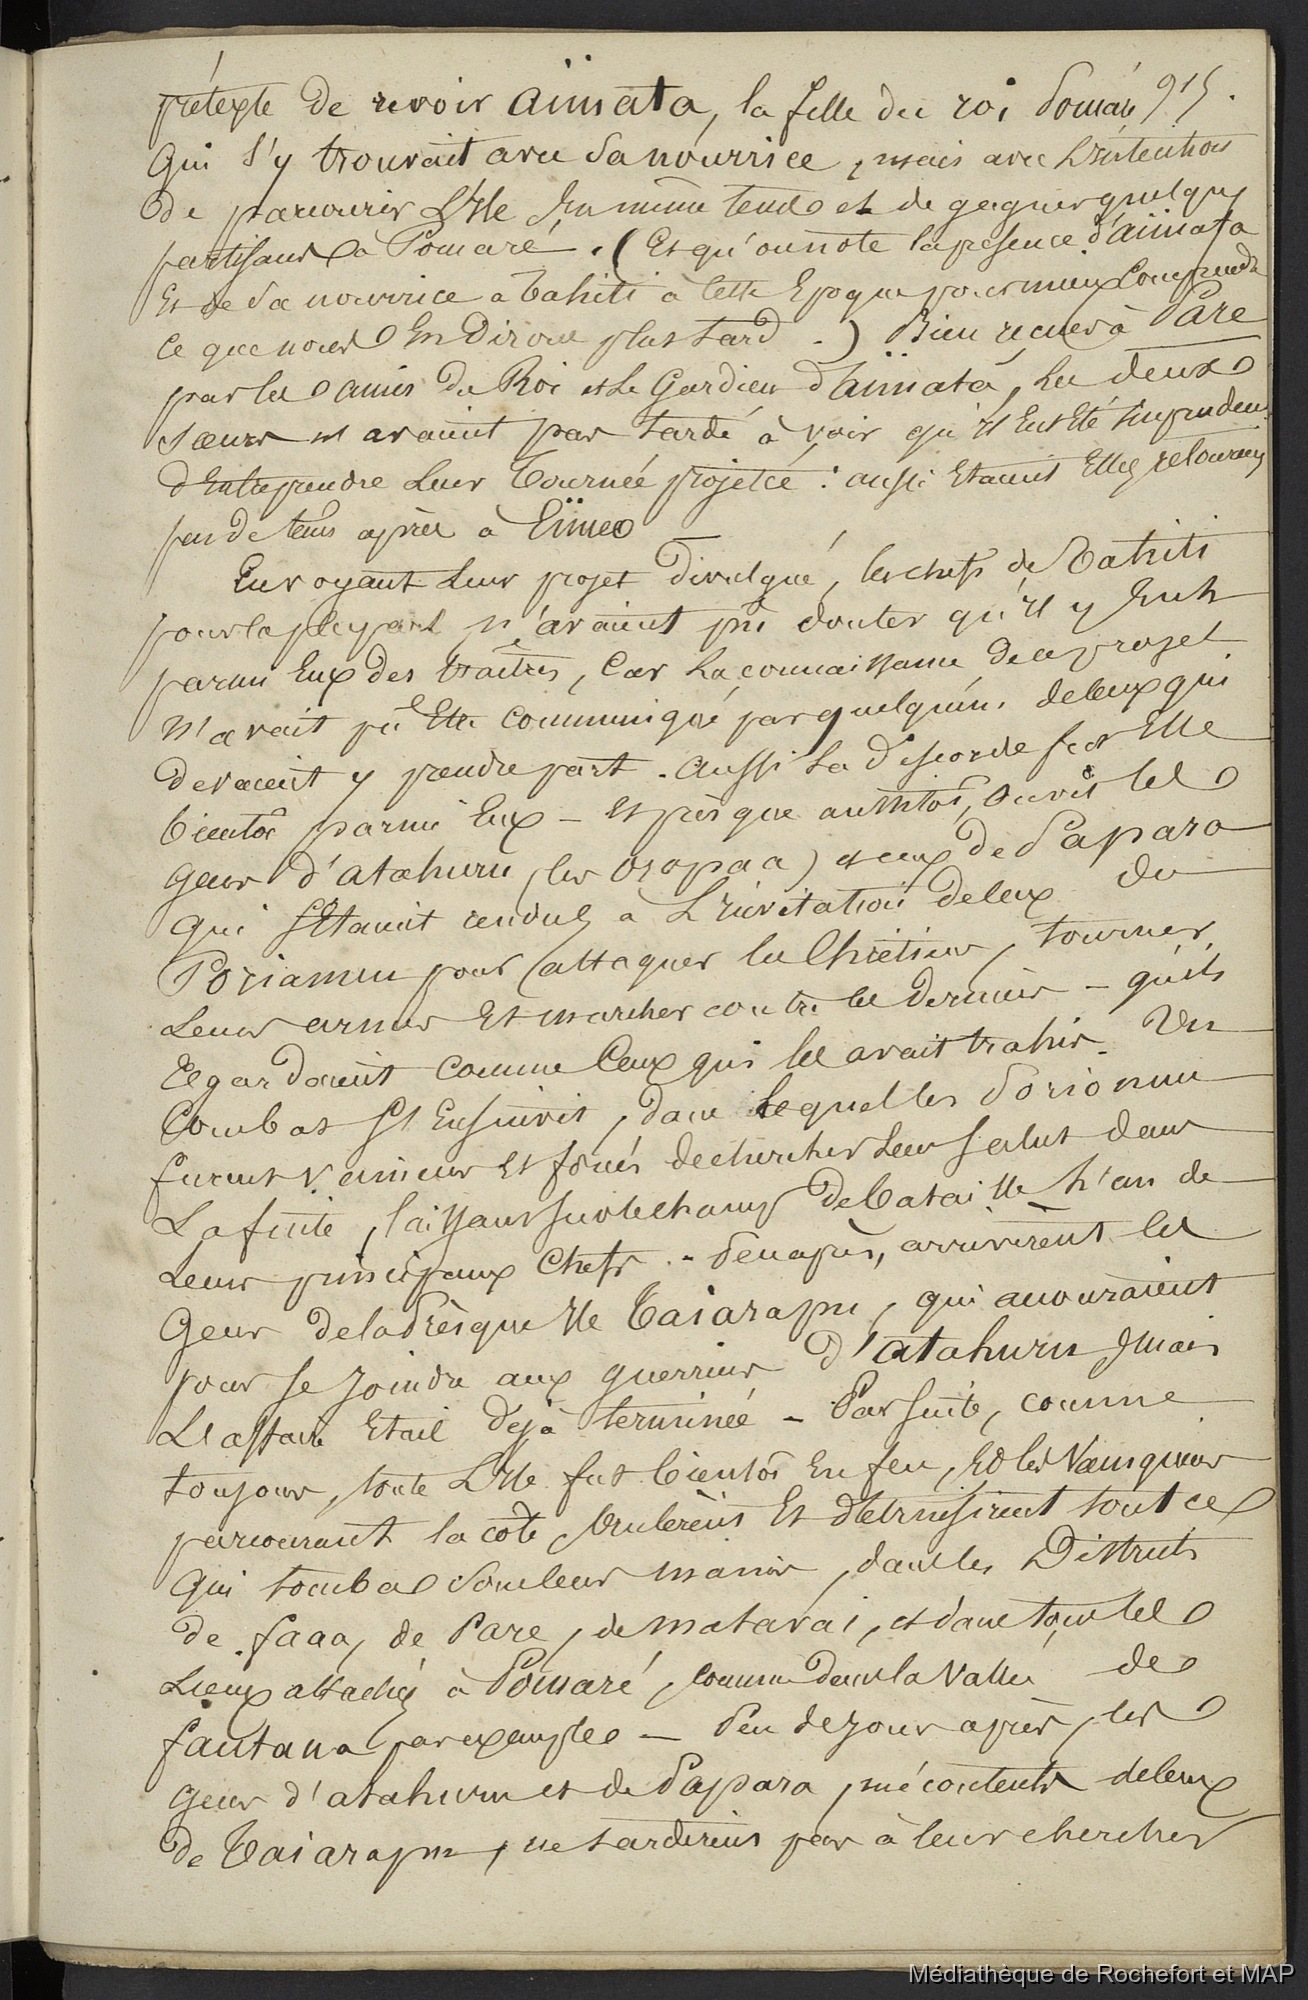 prétexte de revoir aïmata, la fille du roi Pomaré 915.
qui s'y trouvait avec sa nourrice, mais avec L'intention
de parcourir L'Ile En même tems et de gagner quelques
partisans à Pomaré. (Et qu'on note la présence d'aïmata
Et de sa nourrice a Tahiti à cette Epoque pour mieux Comprendre
ce que nous En Dirons plus tard.) Bien reçues à Pare
par les amis du Roi et le Gardien d'aïmata, les deux
sœurs n'avaient pas tardé à voir qu'il Eut Eté imprudent
d'Entreprendre Leur Tournée projetée: aussi Etaient Elles retournées
peu de tems après à Eïmeo —
En voyant Leur projet divulgué, les chefs de Tahiti
pour la plupart n'avaient pu douter qu'il y Eut
parmi Eux des traîtres, Car la connaissance de ce projet
n'avait pu Etre communiquée par quelqu'un de ceux qui
devaient y prendre part. aussi la Discorde fut Elle
bientôt parmi Eux — Et presque aussitôt, on vit les
gens d'atahuru (les oropaa) et ceux de Papara
qui s'Etaient rendus a L'invitation de ceux du
Porionuu pour attaquer les Chrétiens, tourner
Leurs armes Et marcher contre les derniers — qu'ils
regardaient comme Ceux qui les avait trahis. Un
Combat s'Ensuivit, dans lequel les Porionuu
furent vaincus Et forcés de chercher Leur salut dans
La fuite, laissant sur le champ de bataille L'un de
Leurs principaux Chefs. — Peu après, arrivèrent les
Gens de la Presqu'Ile Taiarapu, qui accouraient
pour se joindre aux guerriers d'atahuru, mais
L'affaire Etait déjà terminée — Par suite, comme
toujours, toute L'Ile fut bientôt En feu, Et les Vainqueurs
parcourant la côte, brulèrent Et détruisirent tout ce
qui tomba sous leurs mains, dans les Districts
de faaa, de Pare, de matavai, et dans tous les
Lieux attachés à Pomaré, comme dans la Vallée de
fautaua par exemple — Peu de jours après, les
gens d'atahuru et de Papara, mécontents de ceux
de Taiarapu, ne tardèrent pas à leur chercher
Médiathèque de Rochefort et MAP